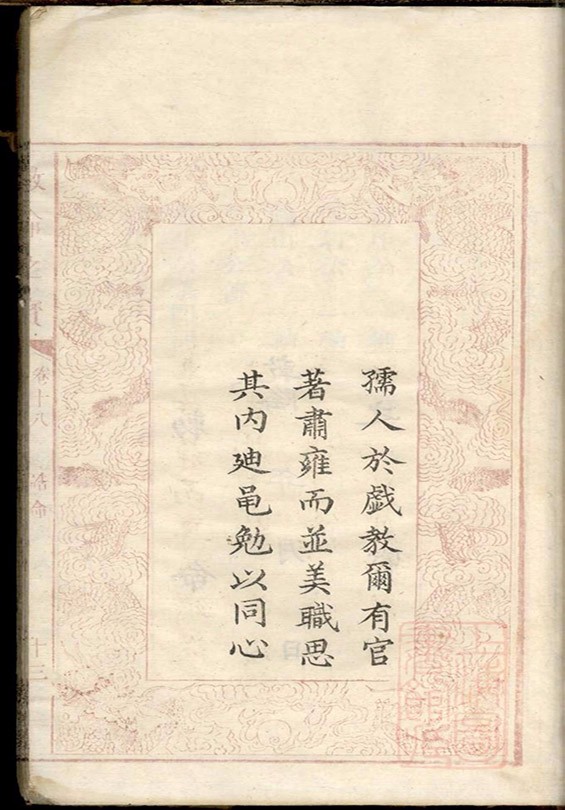 孺人於戯教爾有官
著肅雍而並美職思
其内廸黽勉以同心
卷十八
誥命
十三